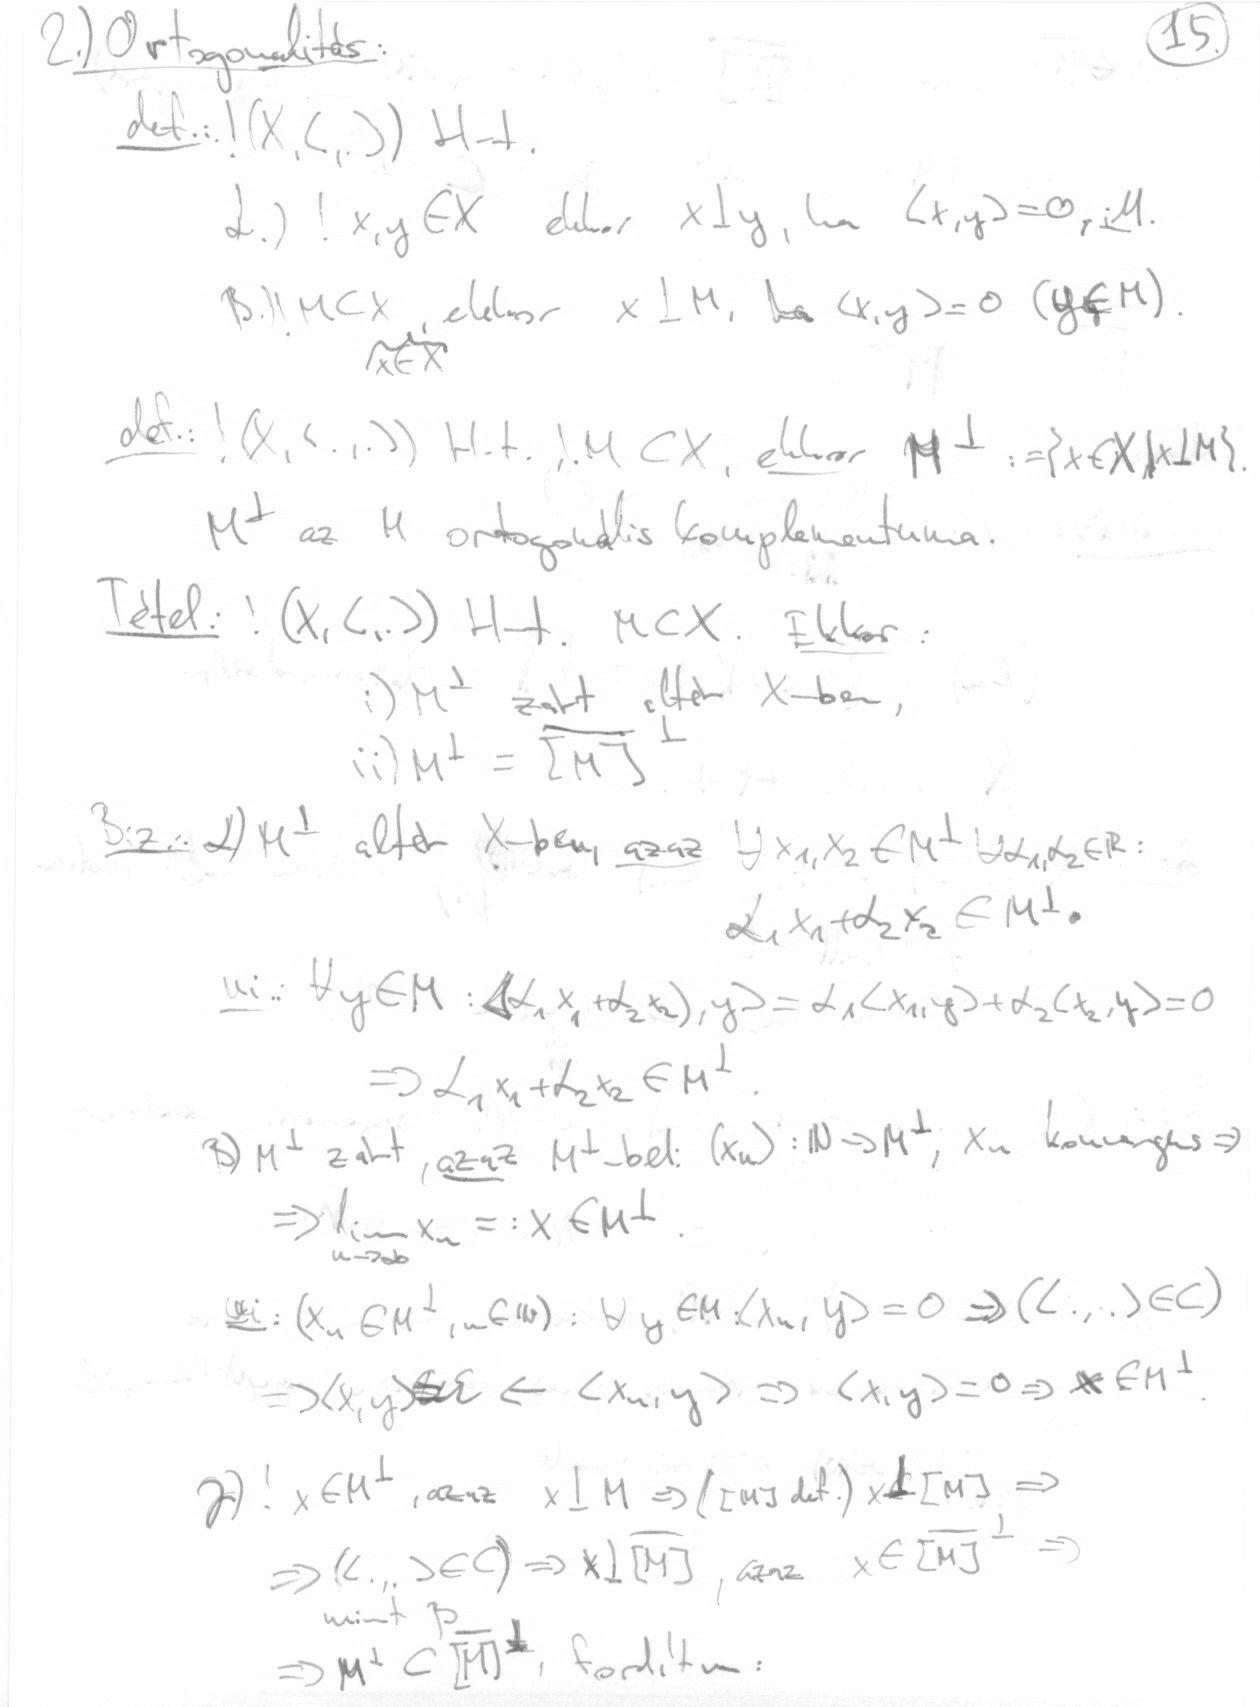 2.) Ortogonalitás:
15.
def.: !(X,<,.>) H-t.
α.) ! x,y∈X ekkor x⊥y, ha <x,y>=0,
β.) ! M⊂X, ekkor x⊥M, ha <x,y>=0 (y∈M).
x∈X
def.: !(X,<.,.>) H.t. !M⊂X, ekkor M^⊥ :={x∈X|x⊥M}.
M^⊥ az M ortogonális komplementuma.
Tétel: ! (X,<,.>) H-t. M⊂X. Ekkor:
i) M^⊥ zárt altér X-ben,
ii) M^⊥ = \overline{[M]}^⊥
Biz.: α) M^⊥ altér X-ben, azaz ∀x₁,x₂∈M^⊥ ∀α₁,α₂∈R:
α₁x₁+α₂x₂ ∈ M^⊥.
ui.: ∀y∈M : <α₁x₁+α₂x₂),y>=α₁<x₁,y>+α₂<x₂,y>=0
⇒ α₁x₁+α₂x₂ ∈ M^⊥.
β) M^⊥ zárt, azaz M^⊥-beli (xₙ):ℕ→M^⊥, xₙ konvergens ⇒
⇒ lim xₙ =: x ∈ M^⊥.
n→∞
ui: (xₙ∈M^⊥, n∈ℕ): ∀y∈M:<xₙ,y>=0 ⇒ (<.,.>∈C)
⇒ <x,y> ← <xₙ,y> ⇒ <x,y>=0 ⇒ x∈M^⊥.
γ) ! x∈M^⊥, azaz x⊥M ⇒ ([M] def.) x⊥[M] ⇒
⇒ (<.,.>∈C) ⇒ x⊥\overline{[M]}, azaz x∈\overline{[M]}^⊥ ⇒
mint β
⇒ M^⊥ ⊂ \overline{[M]}^⊥, fordítva: